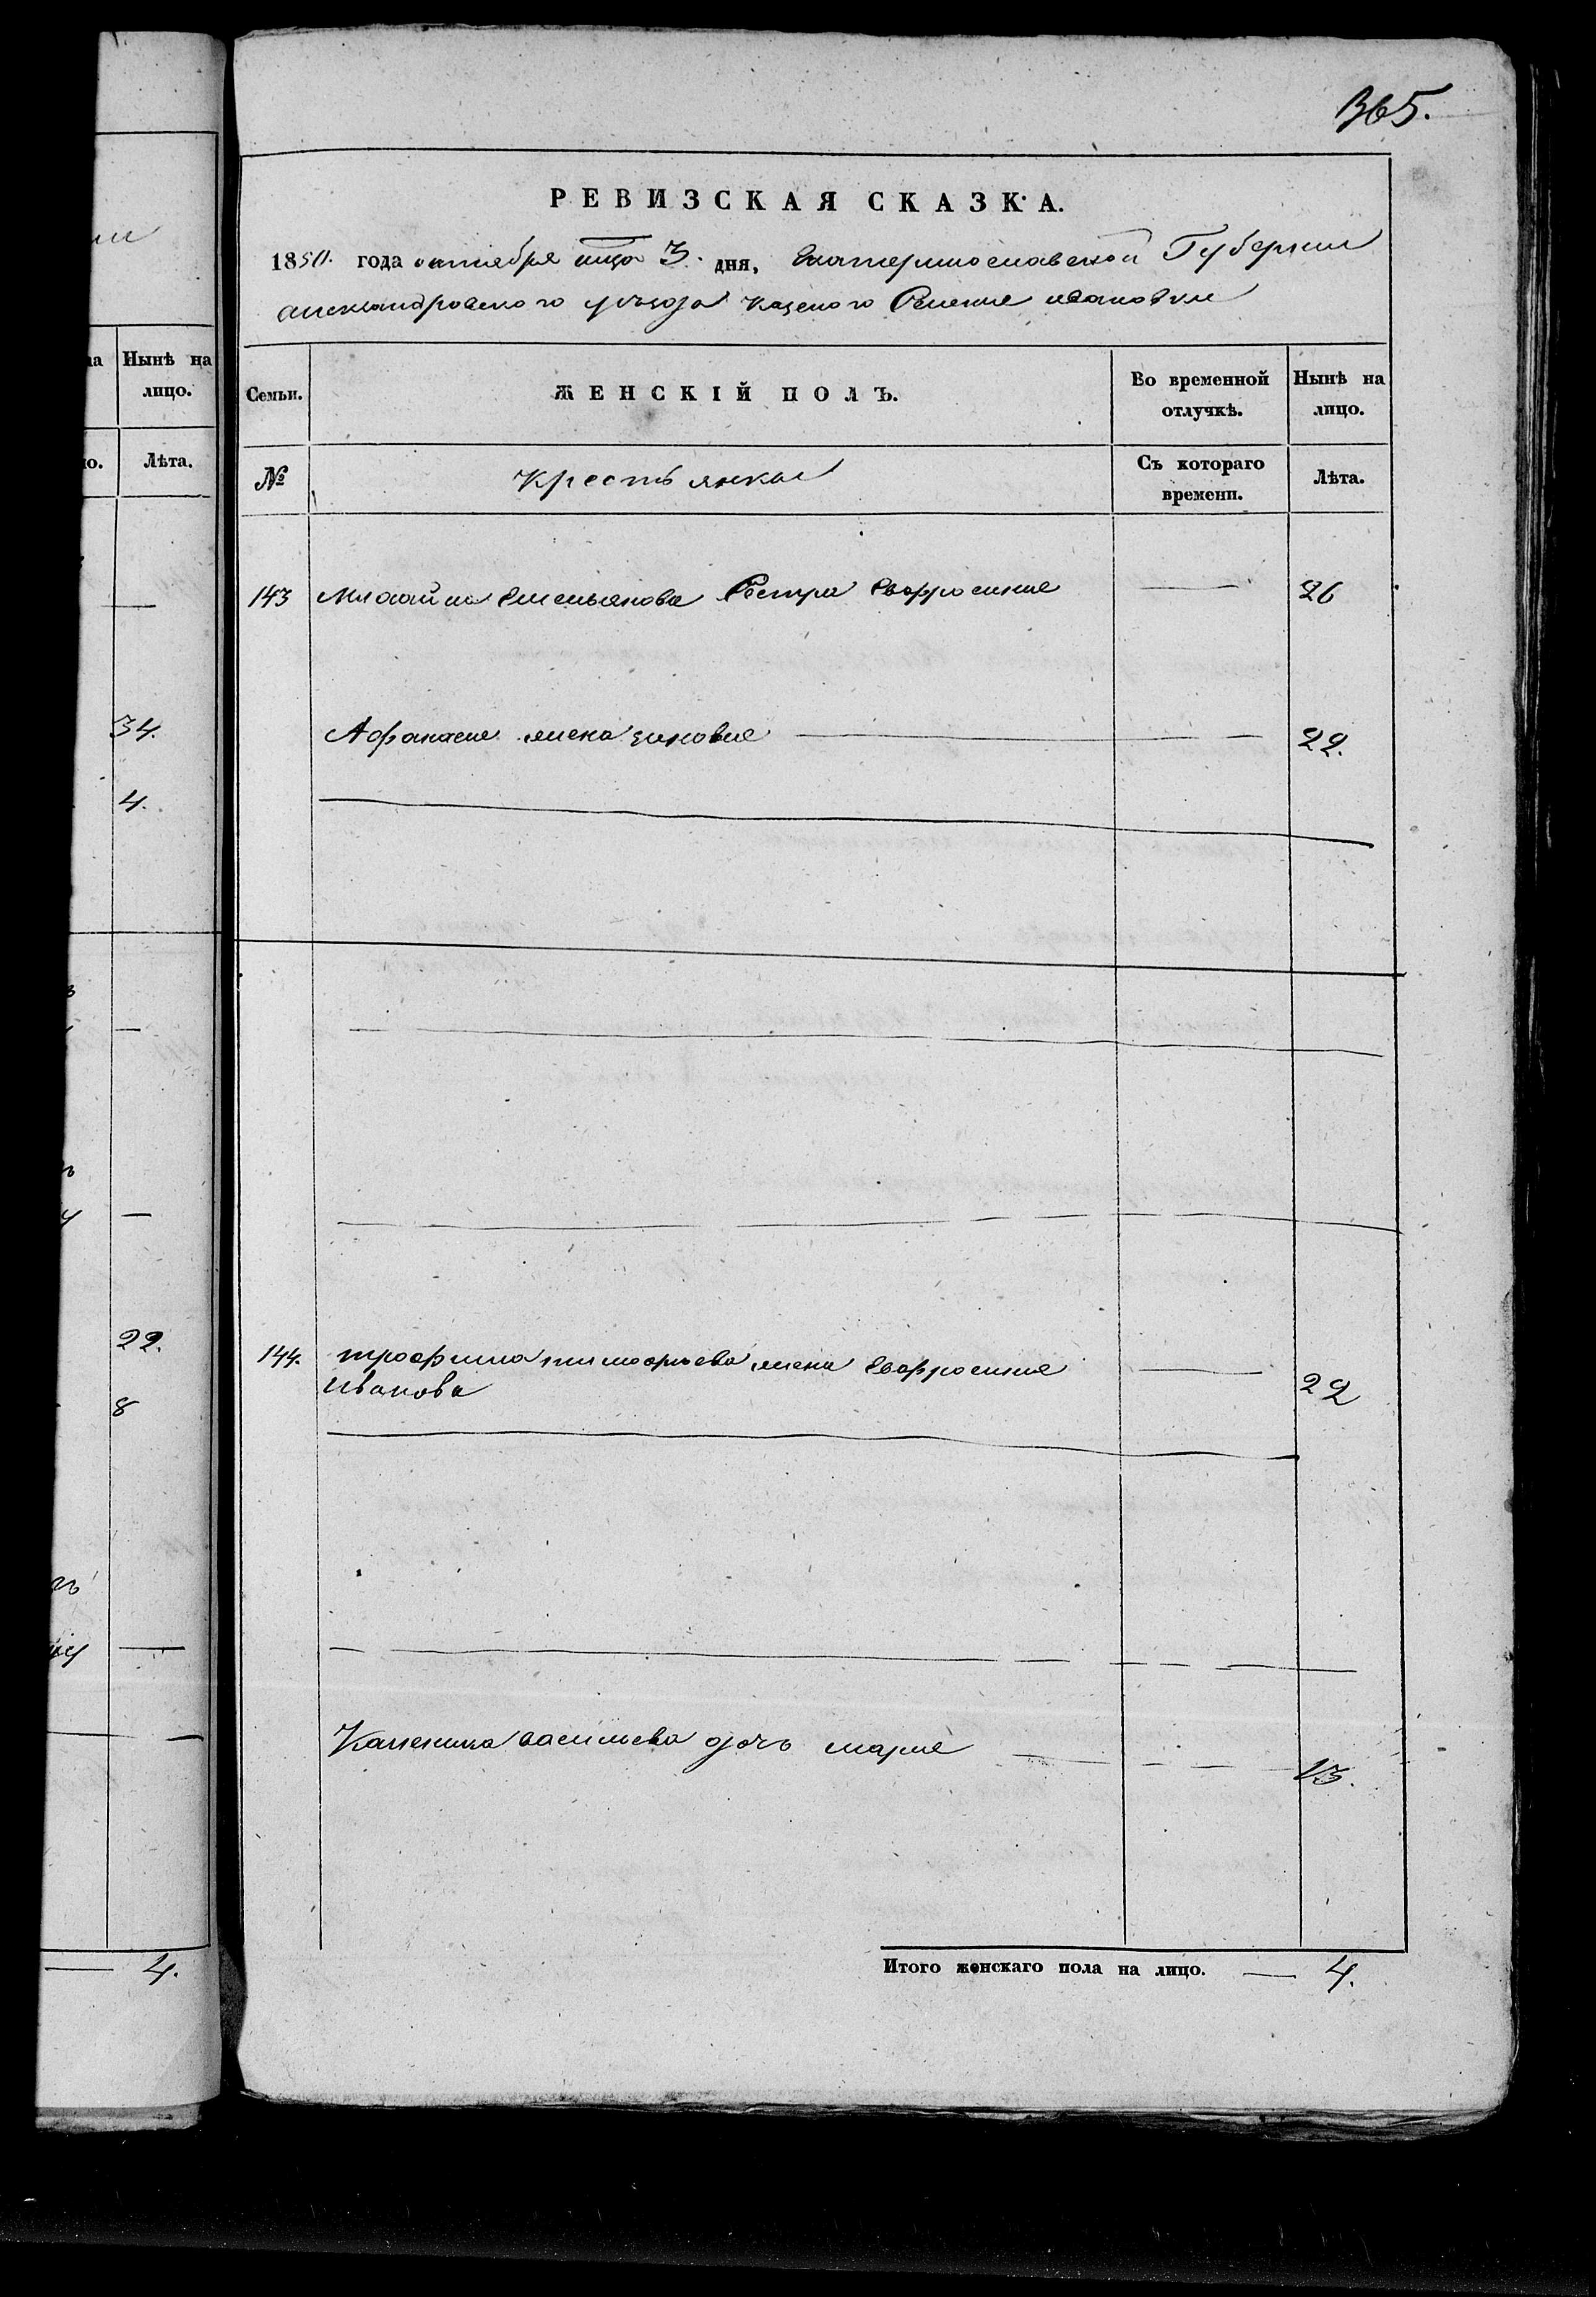 365.
РЕВИЗСКАЯ СКАЗКА.
1850. года октября мца 3. дня, Екатеринославской Губернии
александровского уезда казеного Селения ивановки
на
Нынѣ на
лицо.
Семьи.
ЖЕНСКІЙ ПОЛЪ.
Во временной
отлучкѣ.
Нынѣ на
лицо.
Лѣта.
№
Крестьянки
Съ котораго
времени.
Лѣта.
143 Емельянова Сестра Евфросиния — 26
34.
Афанасия жена зиновия — 22.
4.
22.
144. трофима тимофиева жена Евфросиния — 22
Иванова
8
Каленика васильева дочь мария — 13.
4.
Итого женскаго пола на лицо. — 4.